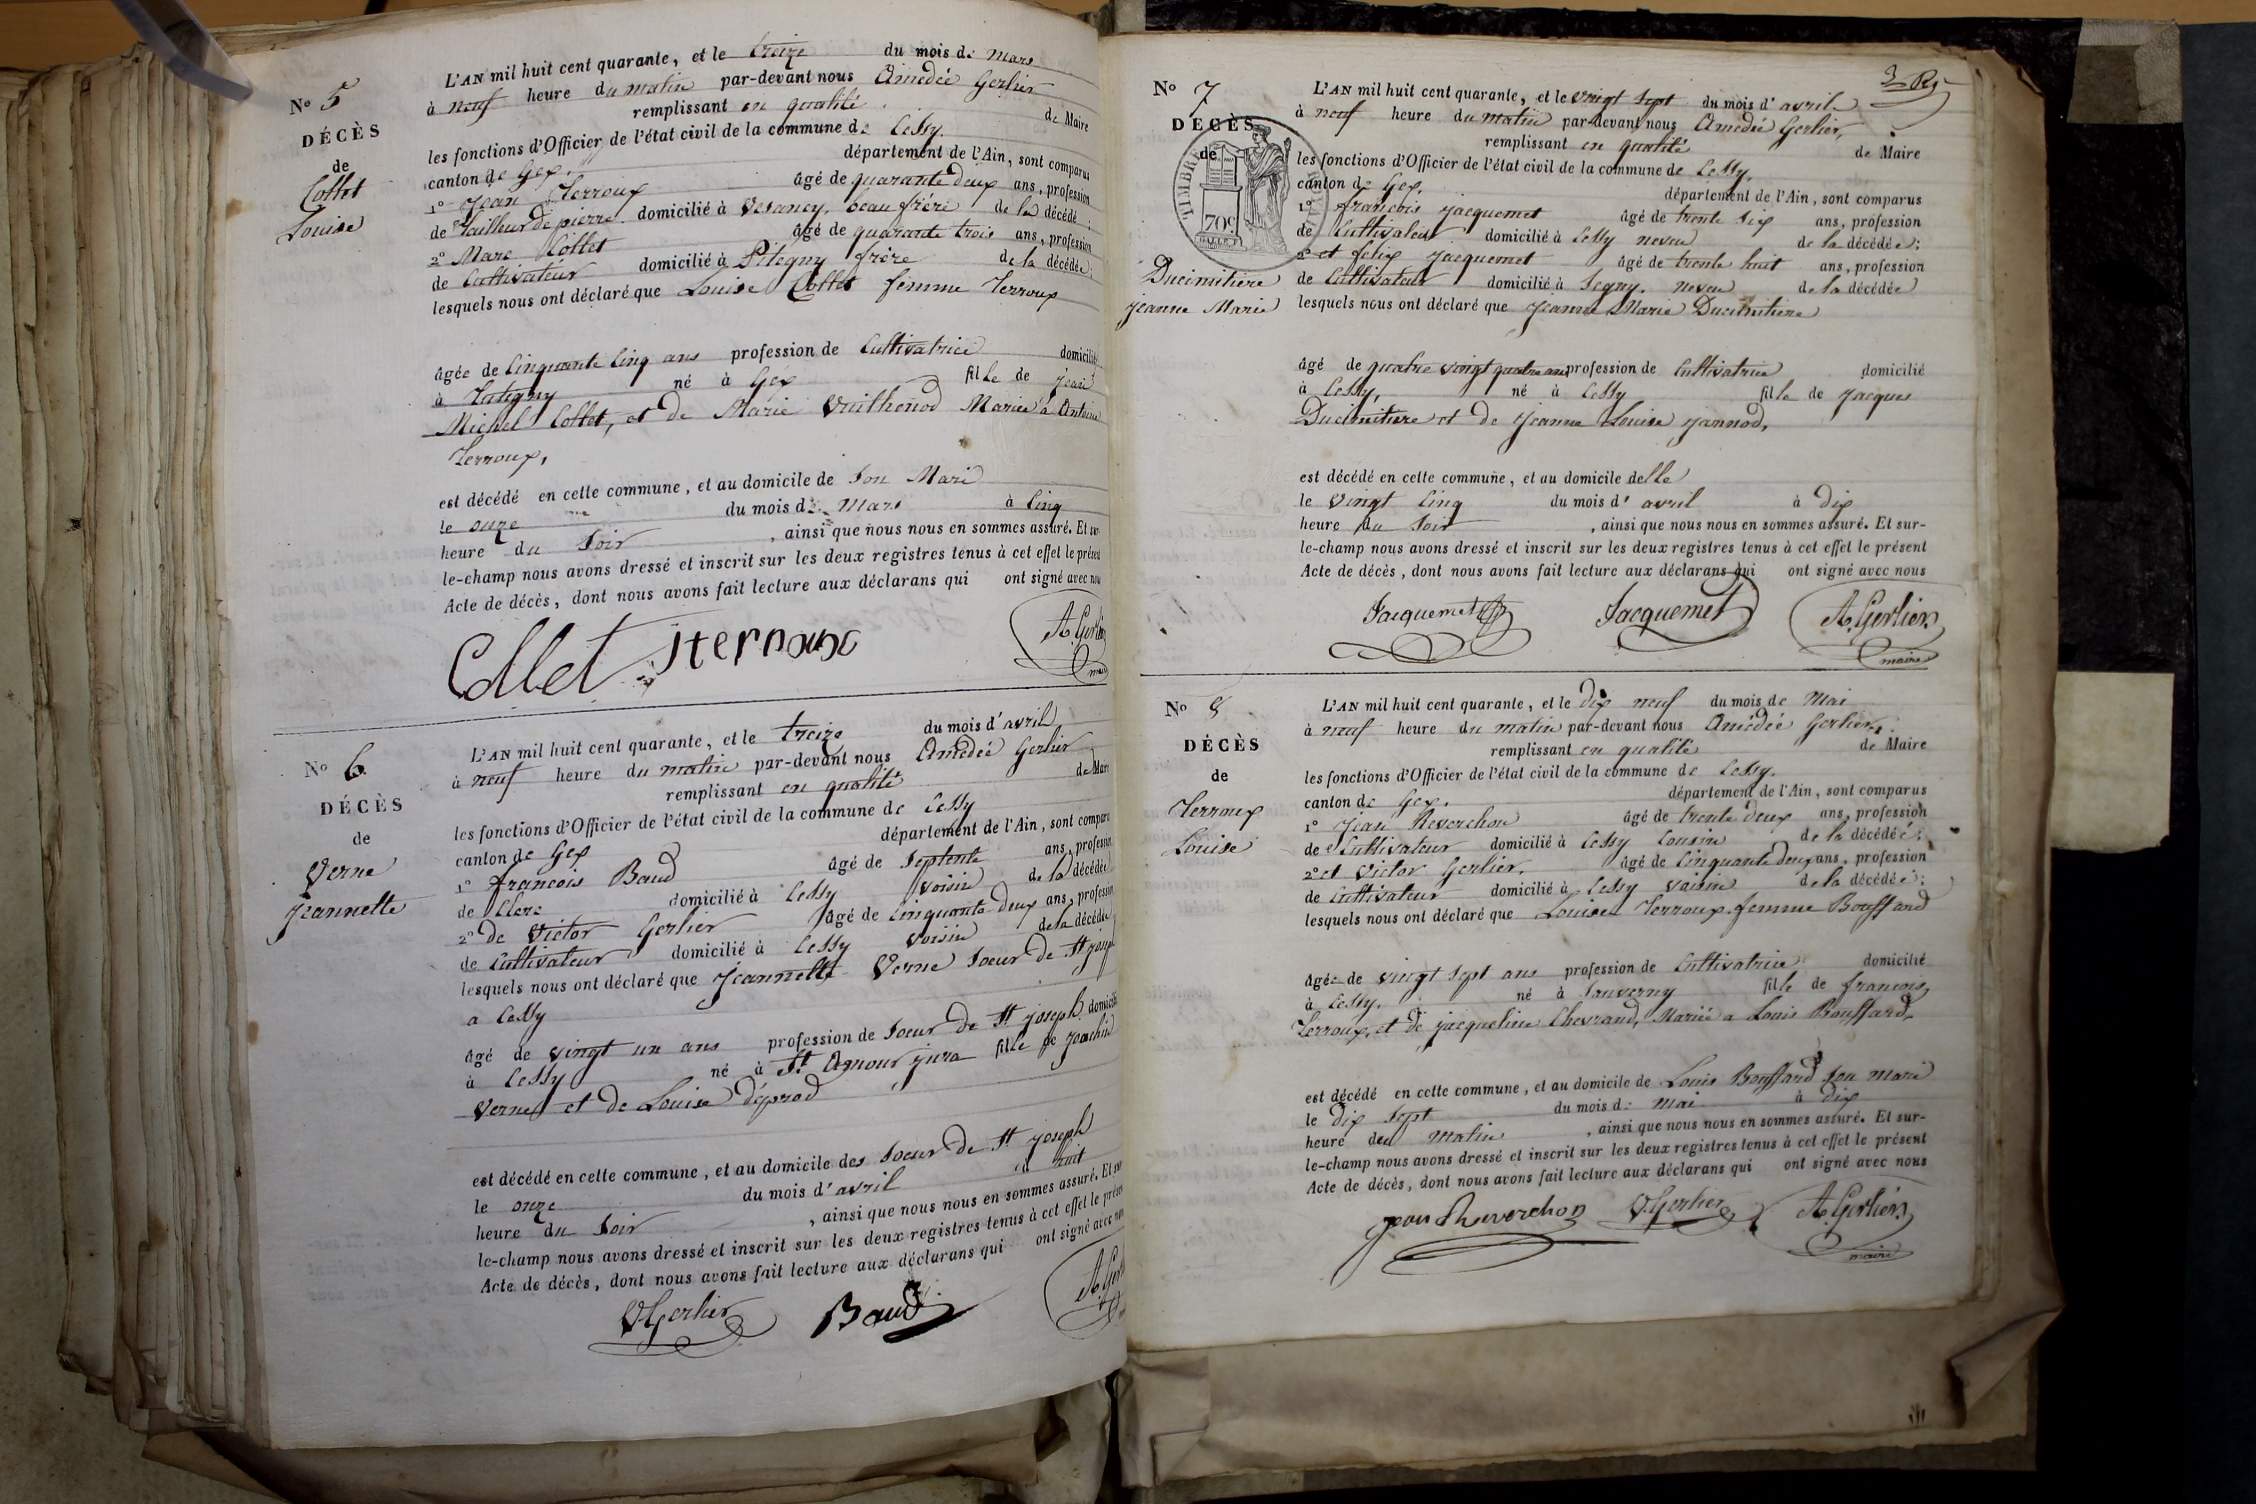 N° 5
DÉCÈS
de
Collet
Louise
L'AN mil huit cent quarante, et le treize du mois de mars
à neuf heure du matin par-devant nous Amedée Gerlier
remplissant en qualité de Maire
les fonctions d'Officier de l'état civil de la commune de Cessy.
canton de Gex. département de l'Ain, sont comparus
1° Jean Terroux âgé de quarante deux ans, profession
de Tailleur de pierre domicilié à Vesancy, beau frère de la décédé ;
2° Marc Collet âgé de quarante trois ans, profession
de Cultivateur domicilié à frère de la décédée;
lesquels nous ont déclaré que Louise Collet femme Terroux
âgée de Cinquante Cinq ans profession de Cultivatrice domicilié
à né à Gex fille de jean
Michel Collet, et de Marie Vuilhenod Mariée à Antoine
Terroux,
est décédé en cette commune, et au domicile de Son Mari
le onze du mois de Mars à Cinq
heure du Soir , ainsi que nous nous en sommes assuré. Et sur-
le-champ nous avons dressé et inscrit sur les deux registres tenus à cet effet le présent
Acte de décès, dont nous avons fait lecture aux déclarans qui ont signé avec nous
Collet A. Gerlier
N° 6
DÉCÈS
de
Verne
Jeannette
L'AN mil huit cent quarante, et le treize du mois d'avril
à neuf heure du matin par-devant nous Amedée Gerlier
remplissant en qualité de Maire
les fonctions d'Officier de l'état civil de la commune de Cessy
canton de Gex département de l'Ain, sont comparus
1° francois Baud âgé de Septente ans, profession
de Clerc domicilié à Cessy Voisin de la décédée
2° de Victor Gerlier âgé de Cinquante deux ans, profession
de Cultivateur domicilié à Cessy Voisin de la décédée
lesquels nous ont déclaré que Jeannette Verne Soeur de St joseph
a Cessy
âgé de vingt un ans profession de Soeur de St joseph domicilié
à Cessy né à St Amour jura fille de joachin
Verne et de Louise déprod
est décédé en cette commune, et au domicile des Soeur de St joseph
le onze du mois d'avril à huit
heure du Soir , ainsi que nous nous en sommes assuré. Et sur
le-champ nous avons dressé et inscrit sur les deux registres tenus à cet effet le présent
Acte de décès, dont nous avons fait lecture aux déclarans qui ont signé avec nous
V. Gerlier Baud A. Gerlier
N° 7
DÉCÈS
de
TIMBRE ROYAL
70c
Ducimitiere
jeanne Marie
L'AN mil huit cent quarante, et le vingt Sept du mois d'avril
à neuf heure du matin par-devant nous Amedée Gerlier,
remplissant en qualité de Maire
les fonctions d'Officier de l'état civil de la commune de Cessy.
canton de Gex. département de l'Ain, sont comparus
1° francois jacquemet âgé de trente Six ans, profession
de Cultivateur domicilié à Cessy neveu de la décédée;
2° et felix jacquemet âgé de trente huit ans, profession
de Cultivateur domicilié à Segny, neveu de la décédée
lesquels nous ont déclaré que jeanne Marie Ducimitiere
âgé de quatre vingt quatre ans profession de Cultivatrice domicilié
à Cessy, né à Cessy fille de jacques
Ducimitiere et de jeanne Louise jannod,
est décédé en cette commune, et au domicile delle
le vingt Cinq du mois d'avril à dix
heure du Soir , ainsi que nous nous en sommes assuré. Et sur-
le-champ nous avons dressé et inscrit sur les deux registres tenus à cet effet le présent
Acte de décès, dont nous avons fait lecture aux déclarans qui ont signé avec nous
Jacquemet Jacquemet A. Gerlier
maire
N° 8
DÉCÈS
de
Terroux
Louise
L'AN mil huit cent quarante, et le dix neuf du mois de Mai
à neuf heure du matin par-devant nous Amédée Gerlier,
remplissant en qualité de Maire
les fonctions d'Officier de l'état civil de la commune de Cessy.
canton de Gex. département de l'Ain, sont comparus
1° jean Reverchon âgé de trente deux ans, profession
de Cultivateur domicilié à Cessy Cousin de la décédée;
2° et Victor Gerlier, âgé de Cinquante deux ans, profession
de Cultivateur domicilié à Cessy voisin de la décédée;
lesquels nous ont déclaré que Louise Terroux femme Bouffard
âgée de vingt Sept ans profession de Cultivatrice domicilié
à Cessy. né à Sauverny fille de francois
Terroux, et de jacqueline Chevrand, Mariée a Louis Bouffard,
est décédé en cette commune, et au domicile de Louis Bouffard Son mari
le dix Sept du mois de Mai à dix
heure du matin , ainsi que nous nous en sommes assuré. Et sur-
le-champ nous avons dressé et inscrit sur les deux registres tenus à cet effet le présent
Acte de décès, dont nous avons fait lecture aux déclarans qui ont signé avec nous
jean Reverchon V. Gerlier A. Gerlier
maire